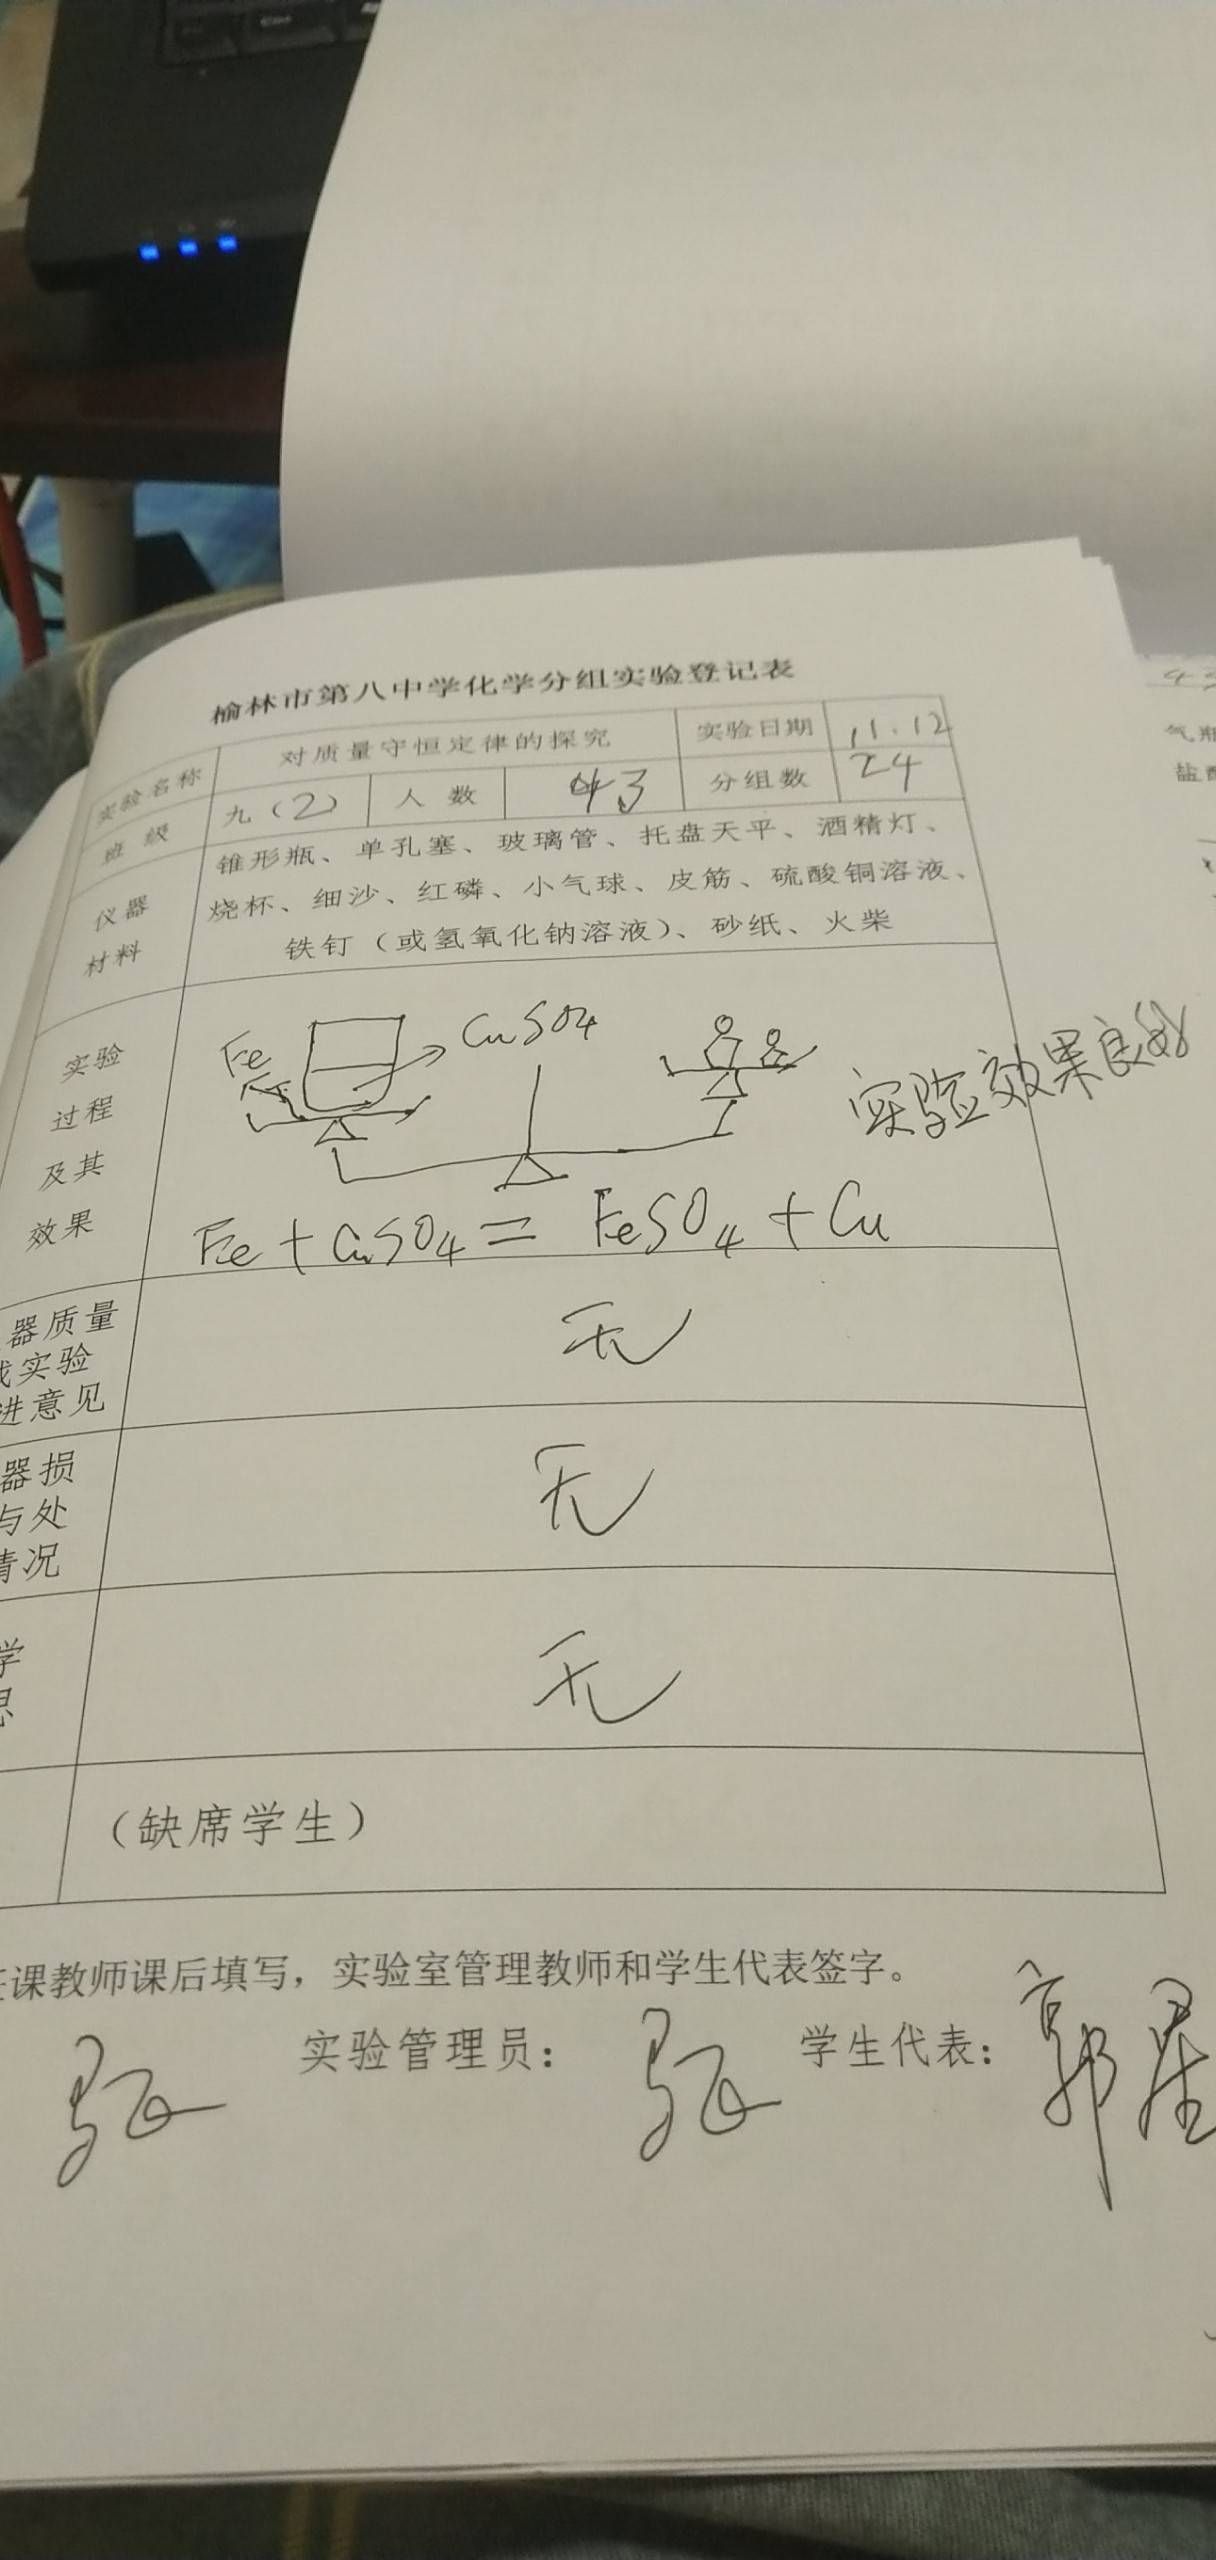 榆林市第八中学化学分组实验登记表
实验名称 对质量守恒定律的探究 实验日期 11.12
班级 九(2) 人数 43 分组数 24
仪器
材料
锥形瓶、单孔塞、玻璃管、托盘天平、酒精灯、
烧杯、细沙、红磷、小气球、皮筋、硫酸铜溶液、
铁钉（或氢氧化钠溶液）、砂纸、火柴
实验
过程
及其
效果
Fe CuSO4
实验效果良好
Fe + CuSO4 = FeSO4 + Cu
器质量
实验
进意见
无
器损
与处
情况
无
学
思
无
（缺席学生）
课教师课后填写，实验室管理教师和学生代表签字。
实验管理员： 学生代表： 郭星
气瓶
盐酸